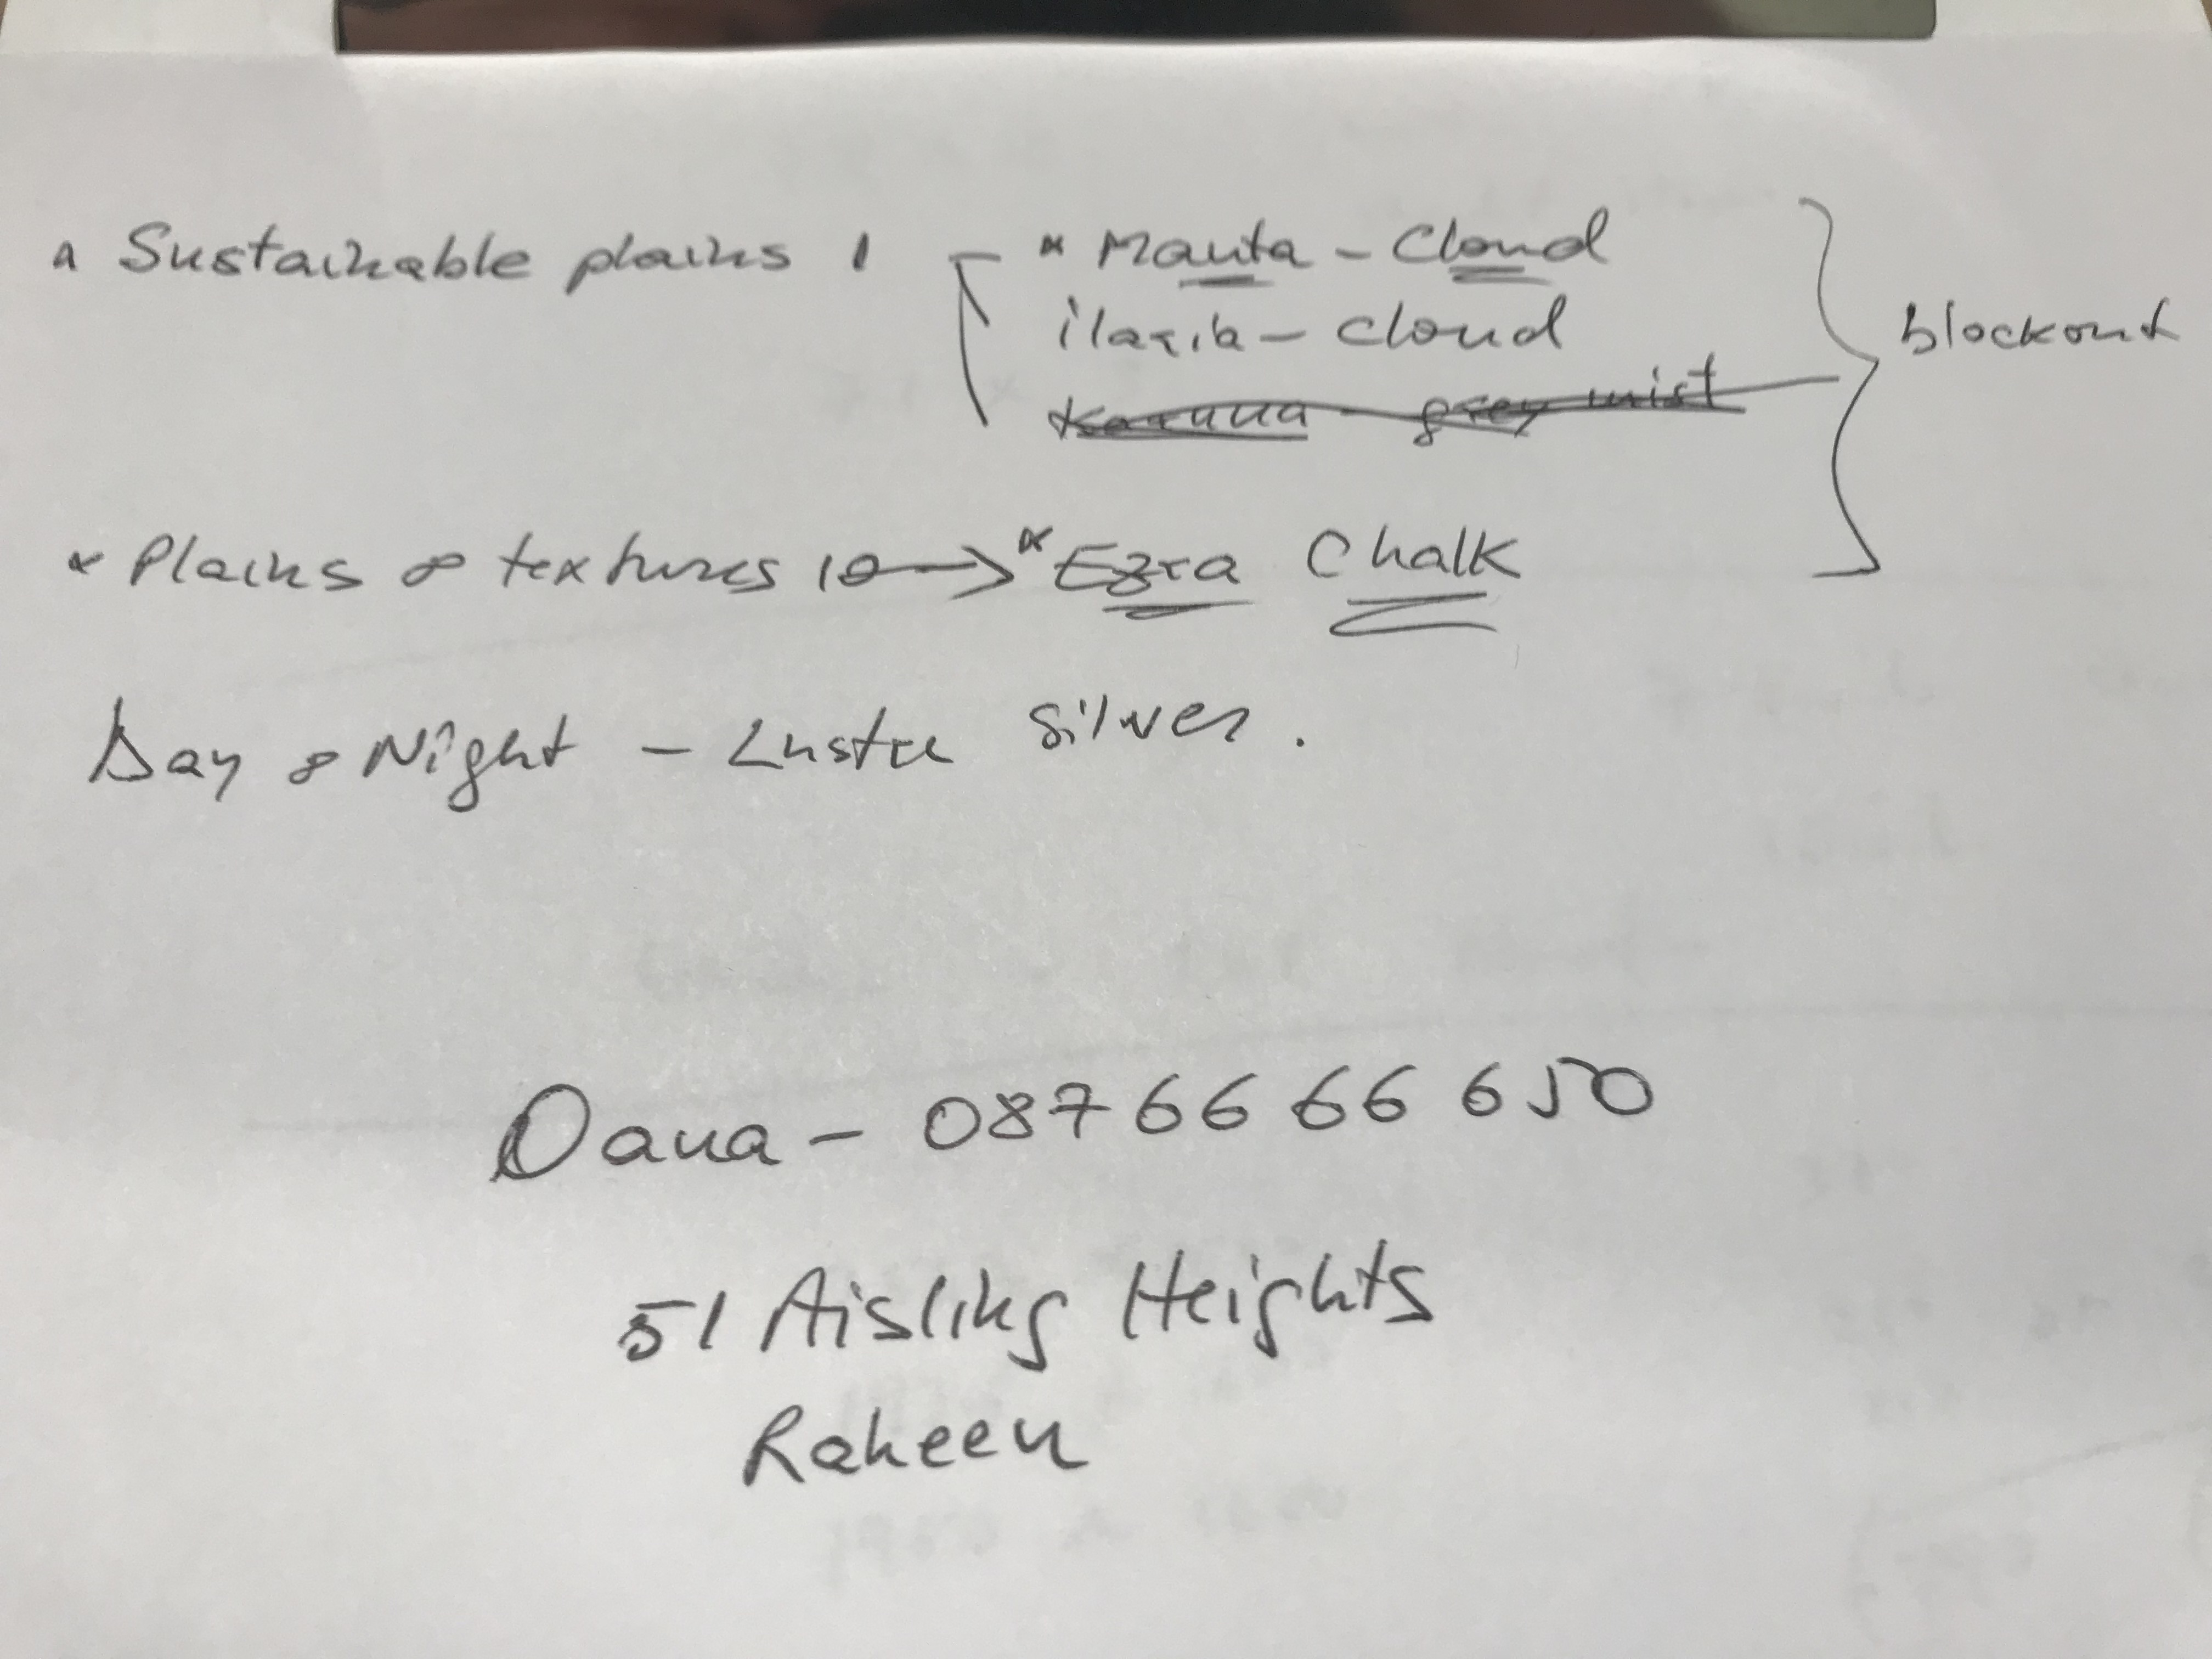 * Sustainable plains 1 * Manta - Cloud
ilaria - cloud
Karuna - grey mist
blockout
* Plains & textures 10 → * Ezra Chalk
Day & Night - Lustre silver.
Dana - 087 66 66 650
51 Aisling Heights
Raheen